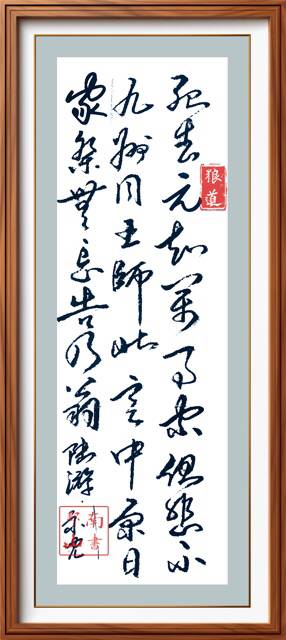 死去元知萬事空但悲不
九州同王師北定中原日
家祭無忘告乃翁陸游
狼道
南書